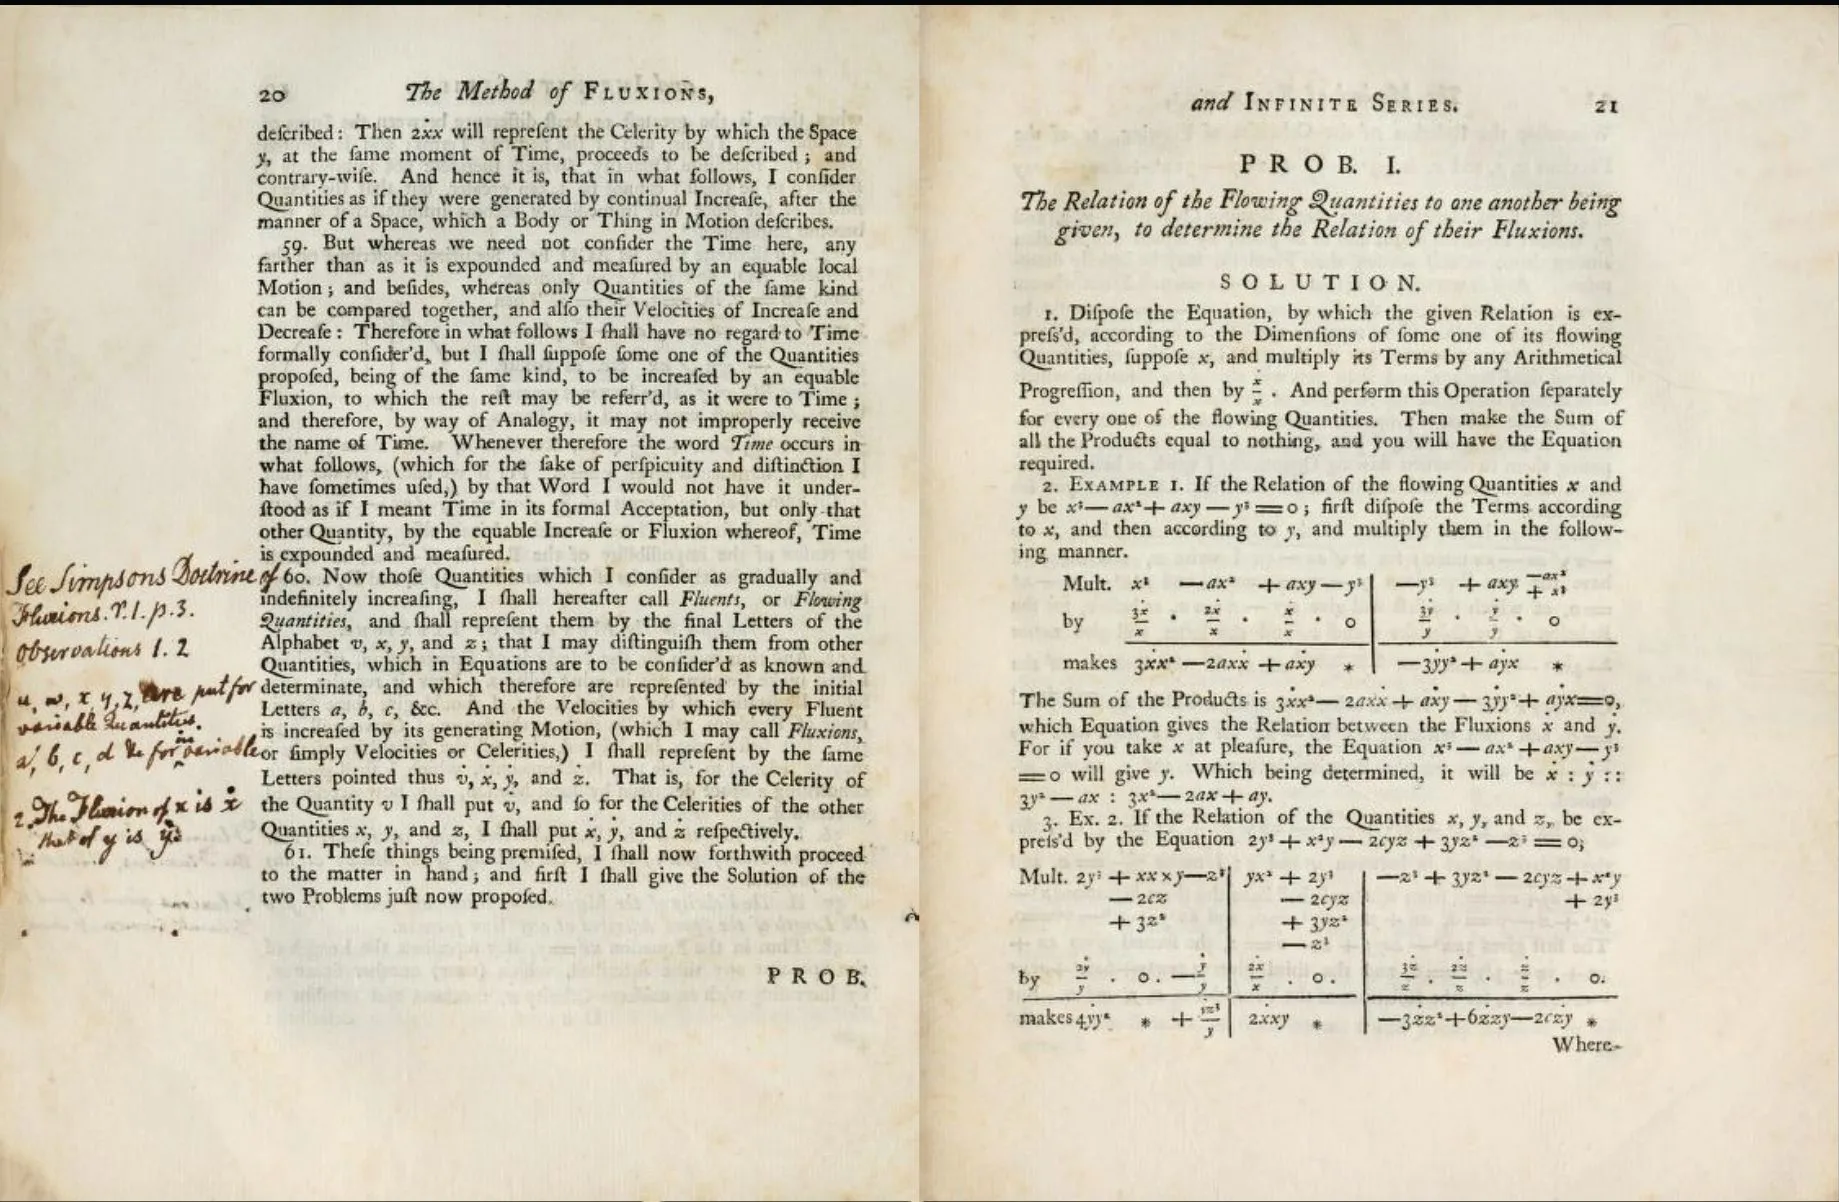 20 The Method of FLUXIONS,
deſcribed: Then 2ẋx will repreſent the Celerity by which the Space
y, at the ſame moment of Time, proceeds to be deſcribed; and
contrary-wiſe. And hence it is, that in what follows, I conſider
Quantities as if they were generated by continual Increaſe, after the
manner of a Space, which a Body or Thing in Motion deſcribes.
59. But whereas we need not conſider the Time here, any
farther than as it is expounded and meaſured by an equable local
Motion; and beſides, whereas only Quantities of the ſame kind
can be compared together, and alſo their Velocities of Increaſe and
Decreaſe: Therefore in what follows I ſhall have no regard to Time
formally conſider'd, but I ſhall ſuppoſe ſome one of the Quantities
propoſed, being of the ſame kind, to be increaſed by an equable
Fluxion, to which the reſt may be referr'd, as it were to Time;
and therefore, by way of Analogy, it may not improperly receive
the name of Time. Whenever therefore the word Time occurs in
what follows, (which for the ſake of perſpicuity and diſtinction I
have ſometimes uſed,) by that Word I would not have it under-
ſtood as if I meant Time in its formal Acceptation, but only that
other Quantity, by the equable Increaſe or Fluxion whereof, Time
is expounded and meaſured.
60. Now thoſe Quantities which I conſider as gradually and
indefinitely increaſing, I ſhall hereafter call Fluents, or Flowing
Quantities, and ſhall repreſent them by the final Letters of the
Alphabet v, x, y, and z; that I may diſtinguiſh them from other
Quantities, which in Equations are to be conſider'd as known and
determinate, and which therefore are repreſented by the initial
Letters a, b, c, &c. And the Velocities by which every Fluent
is increaſed by its generating Motion, (which I may call Fluxions,
or ſimply Velocities or Celerities,) I ſhall repreſent by the ſame
Letters pointed thus v̇, ẋ, ẏ, and ż. That is, for the Celerity of
the Quantity v I ſhall put v̇, and ſo for the Celerities of the other
Quantities x, y, and z, I ſhall put ẋ, ẏ, and ż reſpectively.
61. Theſe things being premiſed, I ſhall now forthwith proceed
to the matter in hand; and firſt I ſhall give the Solution of the
two Problems juſt now propoſed.
PROB.
See Simpsons Doctrine of
Fluxions. V. 1. p. 3.
Observations 1. 2
u, w, x, y, z, are put for
variable Quantities.
a, b, c, d &c for invariable
2. The Fluxion of x is ẋ
that of y is ẏ
and INFINITE SERIES. 21
PROB. I.
The Relation of the Flowing Quantities to one another being
given, to determine the Relation of their Fluxions.
SOLUTION.
1. Diſpoſe the Equation, by which the given Relation is ex-
preſs'd, according to the Dimenſions of ſome one of its flowing
Quantities, ſuppoſe x, and multiply its Terms by any Arithmetical
Progreſſion, and then by ẋ/x. And perform this Operation ſeparately
for every one of the flowing Quantities. Then make the Sum of
all the Products equal to nothing, and you will have the Equation
required.
2. EXAMPLE 1. If the Relation of the flowing Quantities x and
y be x³ — ax² + axy — y³ = 0; firſt diſpoſe the Terms according
to x, and then according to y, and multiply them in the follow-
ing manner.
Mult. x³ — ax² + axy — y³ | — y³ + axy — ax² + x³
by 3ẋ/x . 2ẋ/x . ẋ/x . 0 | 3ẏ/y . ẏ/y . 0
makes 3ẋx² — 2aẋx + aẋy * | — 3ẏy² + aẏx *
The Sum of the Products is 3ẋx² — 2aẋx + aẋy — 3ẏy² + aẏx = 0,
which Equation gives the Relation between the Fluxions ẋ and ẏ.
For if you take x at pleaſure, the Equation x³ — ax² + axy — y³
= 0 will give y. Which being determined, it will be ẋ : ẏ ::
3y² — ax : 3x² — 2ax + ay.
3. Ex. 2. If the Relation of the Quantities x, y, and z, be ex-
preſs'd by the Equation 2y³ + x²y — 2cyz + 3yz² — z³ = 0;
Mult. 2y³ + xx × y — z³ | yx² + 2y³ | — z³ + 3yz² — 2cyz + x²y
— 2cz | — 2cyz | + 2y³
+ 3z² | + 3yz²
— z³
by 2ẏ/y . 0 . — ẏ/y | 2ẋ/x . 0 . | 3ż/z . 2ż/z . ż/z . 0.
makes 4ẏy² * + ẏz³/y | 2ẋxy * | — 3żz² + 6żzy — 2cży *
Where-